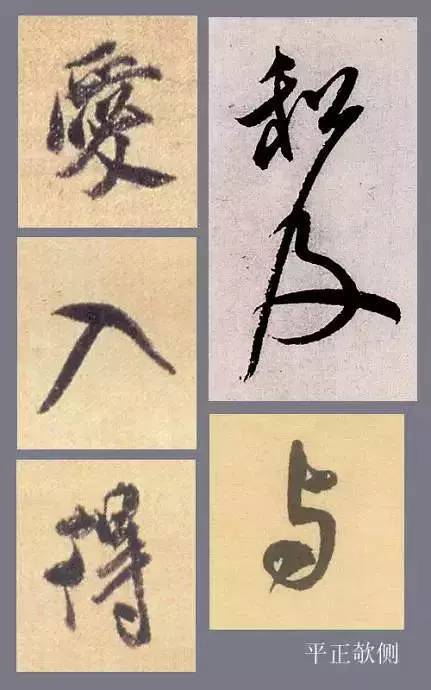 愛
入
得
及
与
平正欹侧